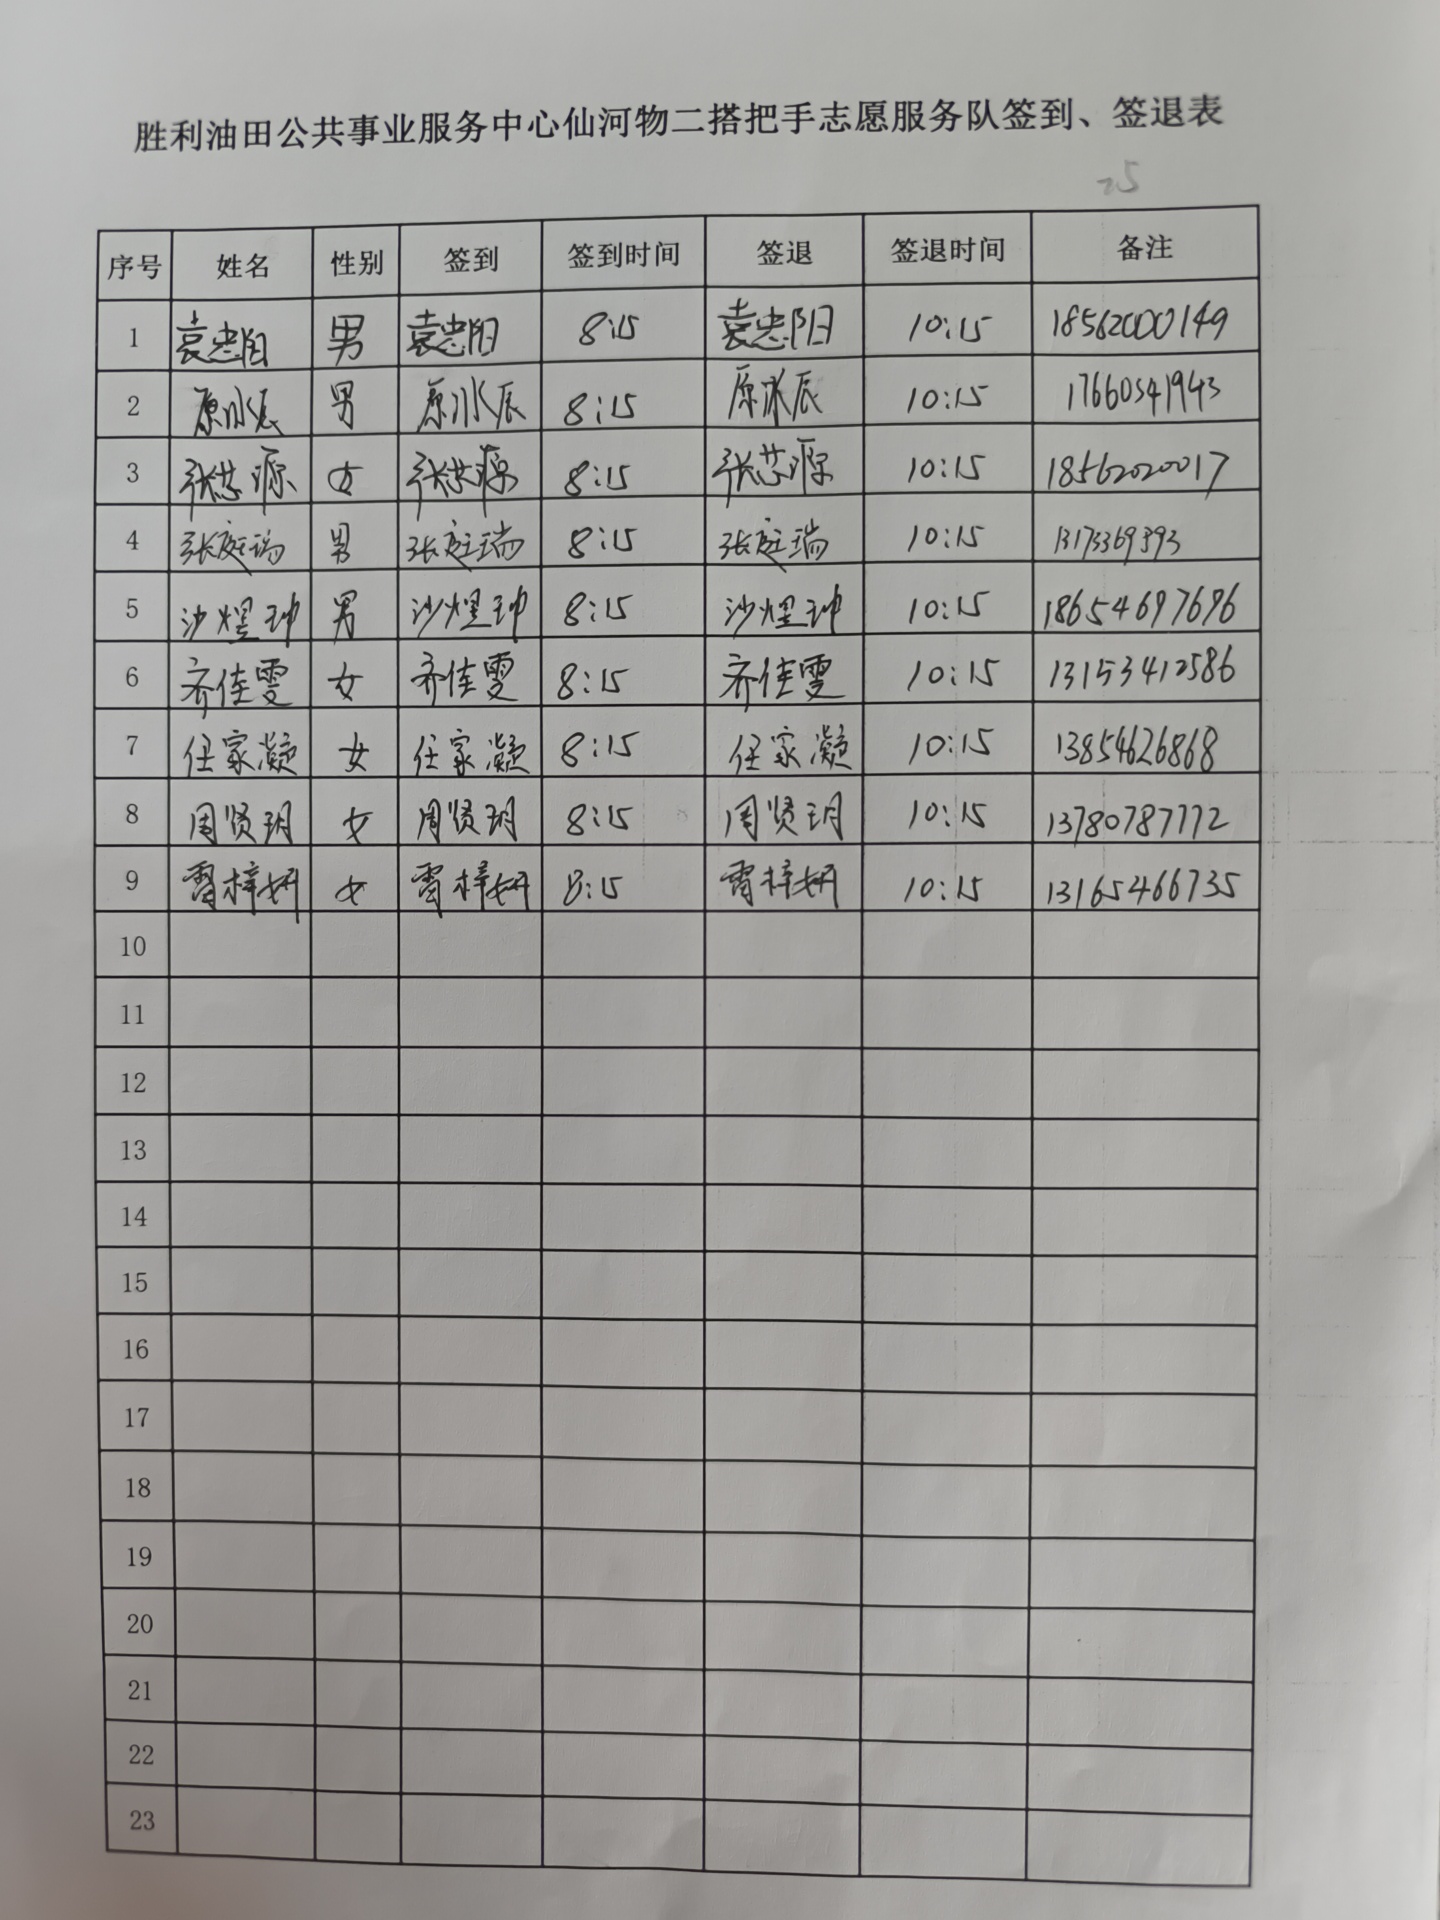 胜利油田公共事业服务中心仙河物二搭把手志愿服务队签到、签退表
25
序号 姓名 性别 签到 签到时间 签退 签退时间 备注
1 袁忠阳 男 袁忠阳 8:15 袁忠阳 10:15 18562000149
2 原冰辰 男 原冰辰 8:15 原冰辰 10:15 17660541943
3 张芯源 女 张芯源 8:15 张芯源 10:15 18562020017
4 张庭瑞 男 张庭瑞 8:15 张庭瑞 10:15 13173369393
5 沙煜珅 男 沙煜珅 8:15 沙煜珅 10:15 18654697696
6 齐佳雯 女 齐佳雯 8:15 齐佳雯 10:15 13153412586
7 任家凝 女 任家凝 8:15 任家凝 10:15 13854626868
8 周贤玥 女 周贤玥 8:15 周贤玥 10:15 13780787772
9 胥梓妍 女 胥梓妍 8:15 胥梓妍 10:15 13165466735
10
11
12
13
14
15
16
17
18
19
20
21
22
23